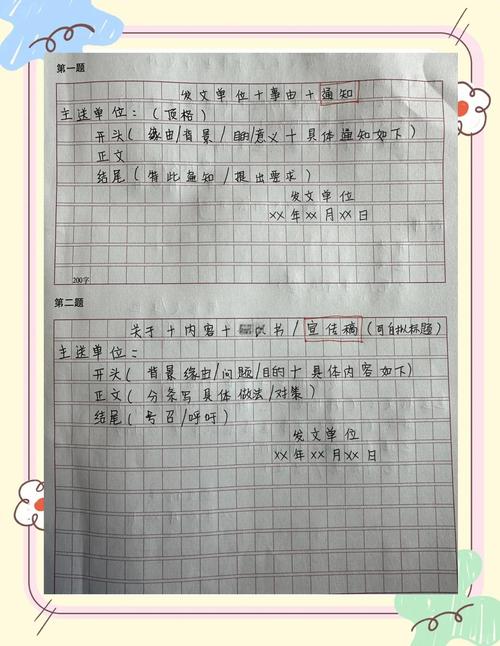 第一题
发文单位+事由+通知
主送单位：（顶格）
开头（缘由/背景/目的/意义+具体通知如下）
正文
结尾（特此通知/提出要求）
发文单位
XX年XX月XX日
200字
第二题
关于+内容+书/宣传稿（可自拟标题）
主送单位：
开头（背景缘由/问题/目的+具体内容如下）
正文（分条写具体做法/对策）
结尾（号召/呼吁）
发文单位
XX年XX月XX日